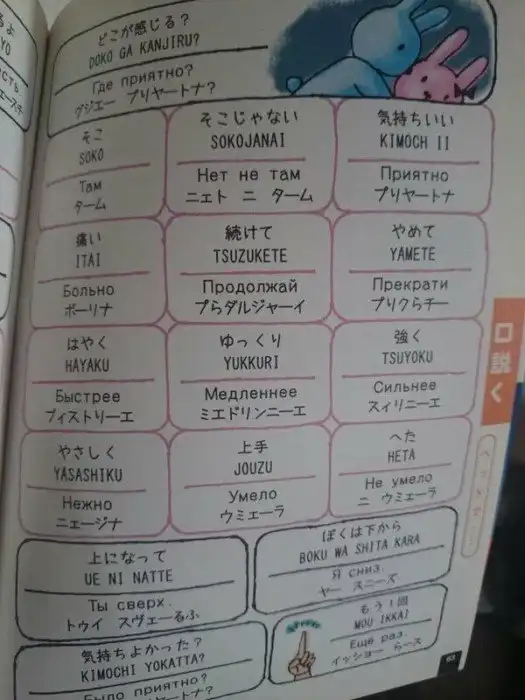 どこが感じる？
DOKO GA KANJIRU?
Где приятно?
グジエー プリヤートナ？
そこ
SOKO
Там
ターム
そこじゃない
SOKOJANAI
Нет не там
ニェト ニ ターム
気持ちいい
KIMOCH II
Приятно
プリヤートナ
痛い
ITAI
Больно
ボーリナ
続けて
TSUZUKETE
Продолжай
プらダルジャーイ
やめて
YAMETE
Прекрати
プリクらチー
はやく
HAYAKU
Быстрее
ブィストリーエ
ゆっくり
YUKKURI
Медленнее
ミエドリンニーエ
強く
TSUYOKU
Сильнее
スィリニーエ
やさしく
YASASHIKU
Нежно
ニェージナ
上手
JOUZU
Умело
ウミェーラ
へた
HETA
Не умело
ニ ウミェーラ
上になって
UE NI NATTE
Ты сверх.
トゥイ スヴェーるふ
ぼくは下から
BOKU WA SHITA KARA
Я сниз.
ヤー スニーズ
気持ちよかった？
KIMOCHI YOKATTA?
Было приятно?
もう1回
MOU IKKAI
Ещё раз.
イッショー らース
口説く
63